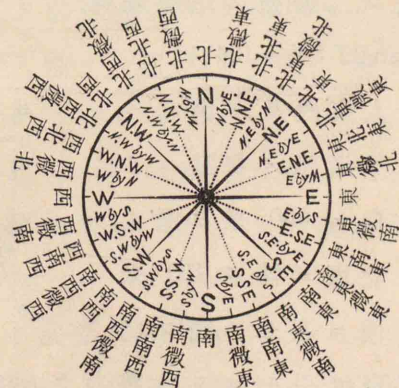 北
北微東
北北東
北東微北
北東
北東微東
東北東
東微北
東
東微南
東南東
南東微東
南東
南東微南
南南東
南微東
南
南微西
南南西
南西微南
南西
南西微西
西南西
西微南
西
西微北
西北西
北西微西
北西
北西微北
北北西
北微西
N
N by E
N.NE
N.E
N.E by E
E.NE
E by N
E
E by S
E.S.E
S.E by E
S.E
S.E by S
S.S.E
S by E
S
S by W
S.S.W
S.W by S
S.W
S.W by W
W.S.W
W by S
W
W by N
W.N.W
N.W by W
N.W
N.W by N
N.N.W
N by W